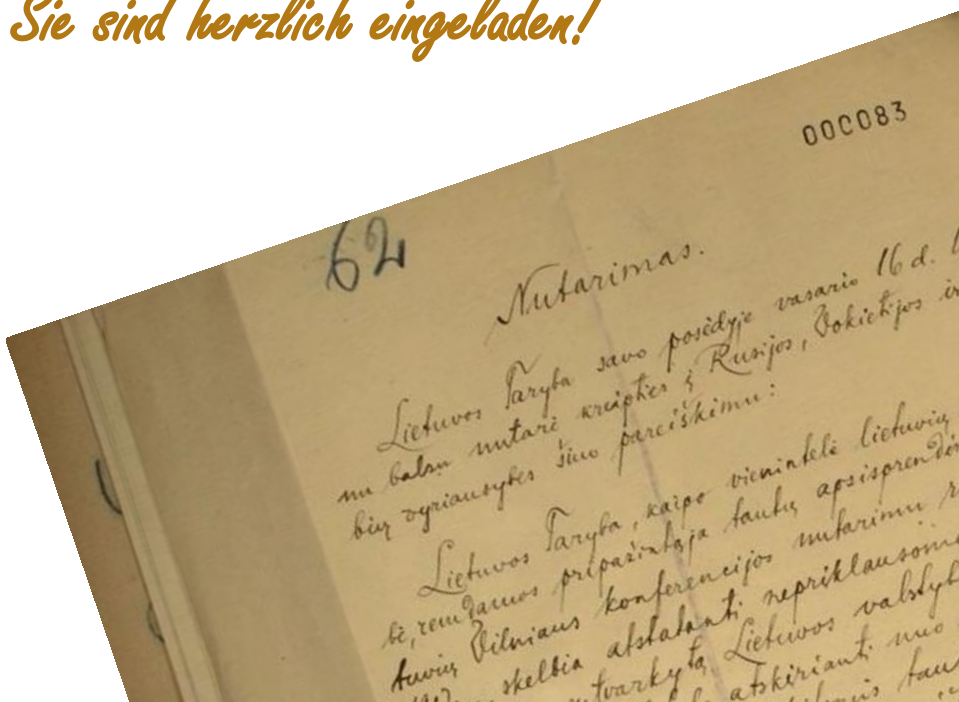 Sie sind herzlich eingeladen!
000083
62
Nutarimas.
Lietuvos Taryba savo posėdyje vasario 16 d.
nu balsu nutarė kreipties į Rusijos, Vokietijos ir
bių vyriausybes šiuo pareiškimu:
Lietuvos Taryba, kaipo vienintelė lietuvių
bė, remdamos pripažintąja tautų apsisprendi
tuvių Vilniaus konferencijos nutarimu
skelbia atstatanti nepriklausom
tvarkytą Lietuvos valstyb
atskirianti nuo
tau